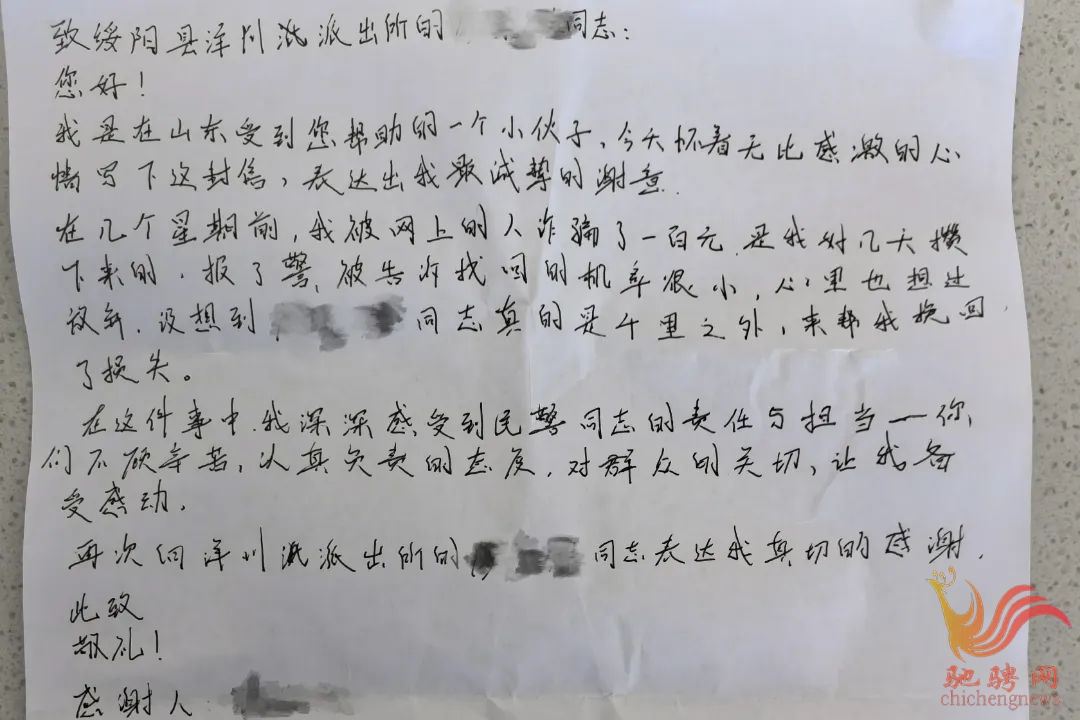 致绥阳县洋川派出所的 同志:
您好!
我是在山东受到您帮助的一个小伙子,今天怀着无比感激的心
情写下这封信,表达出我最诚挚的谢意.
在几个星期前,我被网上的人诈骗了一百元.是我好几天攒
下来的,报了警,被告诉找回的机率很小,心里也想过
没新.没想到 同志真的是千里之外,来帮我挽回
了损失。
在这件事中.我深深感受到民警同志的责任与担当一你
们不顾辛苦,认真负责的态度,对群众的关切,让我备
受感动.
再次向洋川派出所的 同志表达我真切的感谢.
此致
敬礼!
感谢人
驰骋网
chichengnews